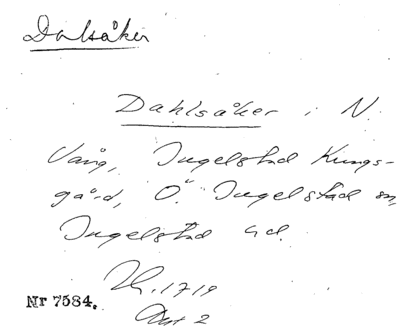 Dalsåker
Dahlsåker i N.
Vång, Ingelstad Kungs-
gård, Ö. Ingelstad sn,
Ingelstad hd.
1719
Nr 7584.
2